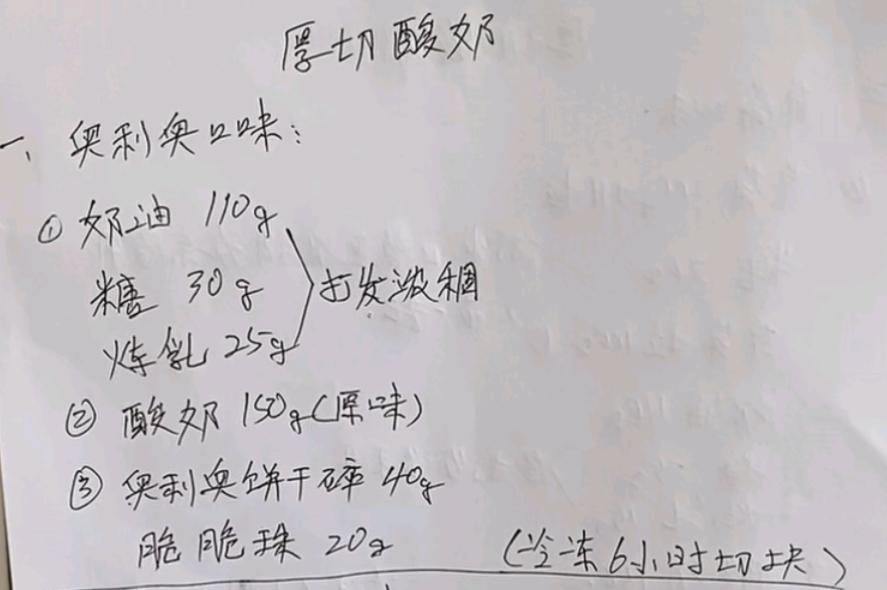 厚切酸奶
一、奥利奥口味：
① 奶油 110g
糖 30g 打发浓稠
炼乳 25g
② 酸奶 150g（原味）
③ 奥利奥饼干碎 40g
脆脆珠 20g （冷冻6小时切块）